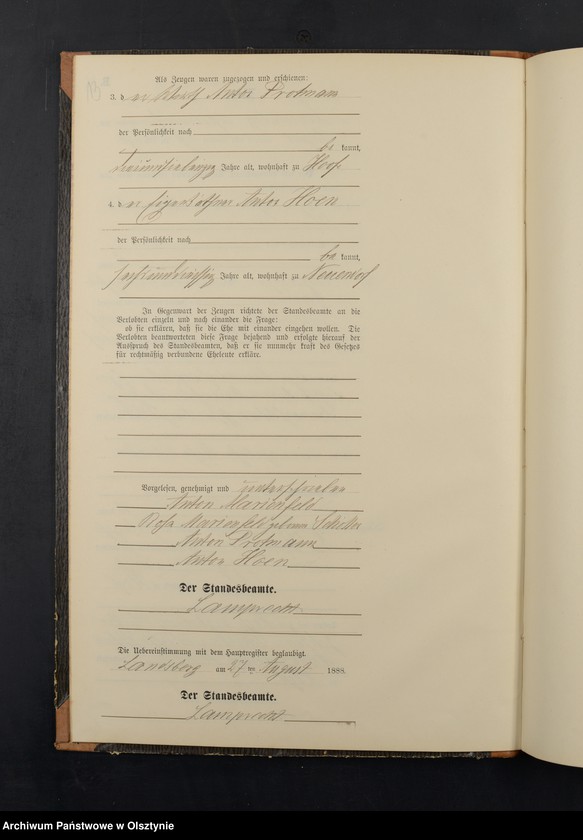 Als Zeugen waren zugezogen und erschienen:
3. der Anton Protmann
der Persönlichkeit nach
be kannt,
Jahre alt, wohnhaft zu Hoof
4. der Eigenkäthner Anton Hoen
der Persönlichkeit nach
be kannt,
Jahre alt, wohnhaft zu Neuendorf
In Gegenwart der Zeugen richtete der Standesbeamte an die
Verlobten einzeln und nach einander die Frage:
ob sie erklären, daß sie die Ehe mit einander eingehen wollen. Die
Verlobten beantworteten diese Frage bejahend und erfolgte hierauf der
Ausspruch des Standesbeamten, daß er sie nunmehr kraft des Gesetzes
für rechtmäßig verbundene Eheleute erkläre.
Vorgelesen, genehmigt und unterschrieben
Anton Marienfeld
Rosa Marienfeld geborene
Anton Protmann
Anton Hoen
Der Standesbeamte.
Lamprecht
Die Uebereinstimmung mit dem Hauptregister beglaubigt.
Landsberg am 27 ten August 1888.
Der Standesbeamte.
Lamprecht
Archiwum Państwowe w Olsztynie